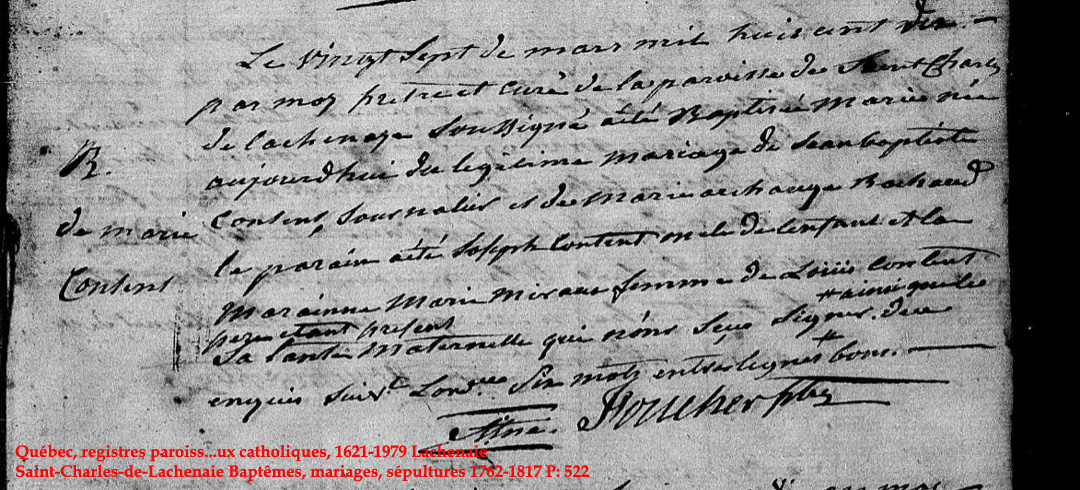 Le vingt Sept de mars mil huis cent dix.
par moy prêtre et curé de la paroisse de Saint Charles
de lachenaye Soussigné a été Baptisé Marie née
B.
aujourdhui du légitime mariage de Jean baptiste
de marie
Content, Journalier et de Marie archange Rochaud
Content
le parain a été Joseph Content oncle de lenfant et la
Marainne Marie femme de Louis Content
* ainsi que le
pere etant présent
Sa tante Maternelle qui n'ont Sçue Signer. de ce
enquis Suivt. Lordce. Six mots entrelignés bons.
Boucher ptre
Québec, registres paroiss...ux catholiques, 1621-1979 Lachenaie
Saint-Charles-de-Lachenaie Baptêmes, mariages, sépultures 1762-1817 P: 522